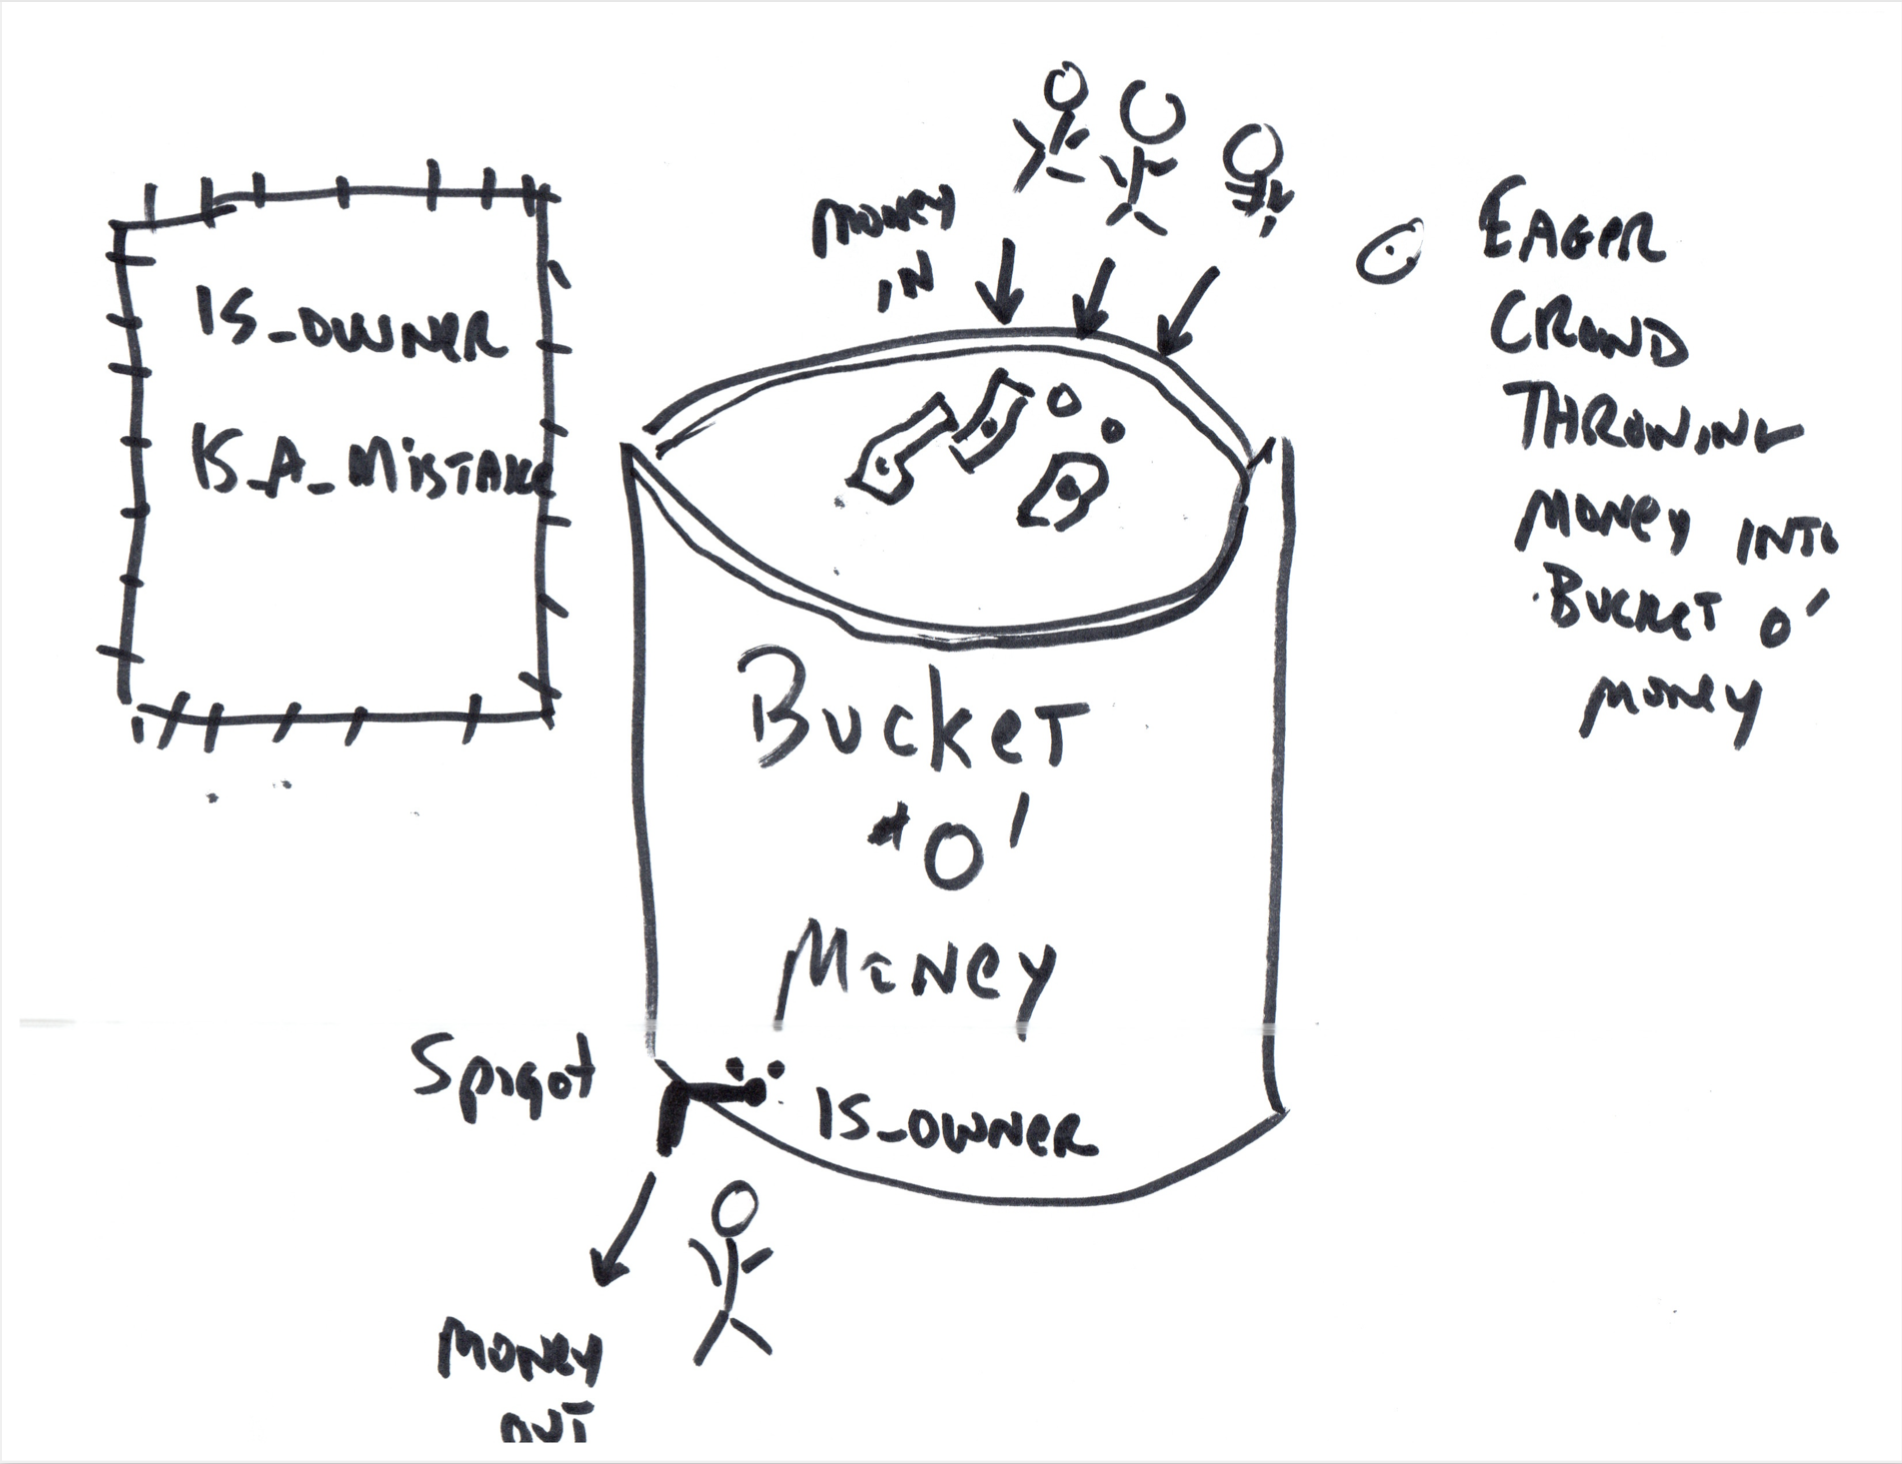 IS_OWNER
IS_A_MISTAKE
MONEY
IN
EAGER
CROWD
THROWING
MONEY INTO
BUCKET O'
MONEY
BUCKET
O'
MONEY
Spigot
IS_OWNER
MONEY
OUT